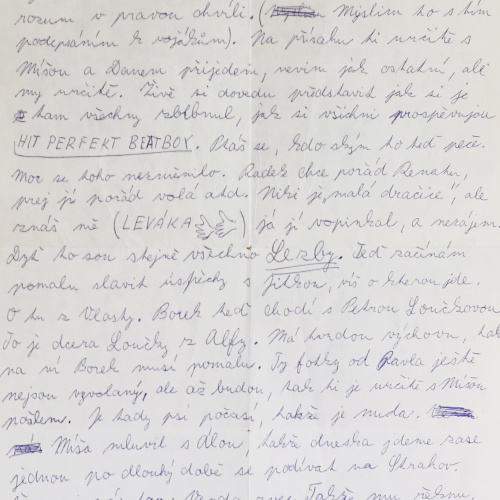 rozum v pravou chvíli. (Myslím to s tím
podepsáním k vojákům). Na přísahu ti určitě s
Míšou a Danem přijedem, nevím jak ostatní, ale
my určitě. Živě si dovedu představit jak si je
tam všechny zblbnul, jak si všichni prospěvujou
HIT PERFEKT BEATBOX. Ptáš se, kdo s kým to teď peče.
Moc se toho nezměnilo. Radek chce pořád Renatu,
prej jí pořád volá atd. Niki je „malá dračice", ale
znáš mě (LEVÁKA) já jí vopinkal, a nerajem.
Dyť to sou stejně všechno Lezby. Teď začínám
pomalu slavit úspěchy s Jitkou, víš o kterou jde.
O tu z Vlasty. Borek teď chodí s Petrou Loučkovou
To je dcera Loučky z Alfy. Má tvrdou výchovu, tak
na ní Borek musí pomalu. Ty fotky od Pavla ještě
nejsou vyvolaný, ale až budou, tak ti je určitě s Míšou
pošlem. Je tady psí počasí, takže je nuda.
Míša mluvil s Alou, takže dneska jdeme zase
jednou po dlouhý době se podívat na Strahov.